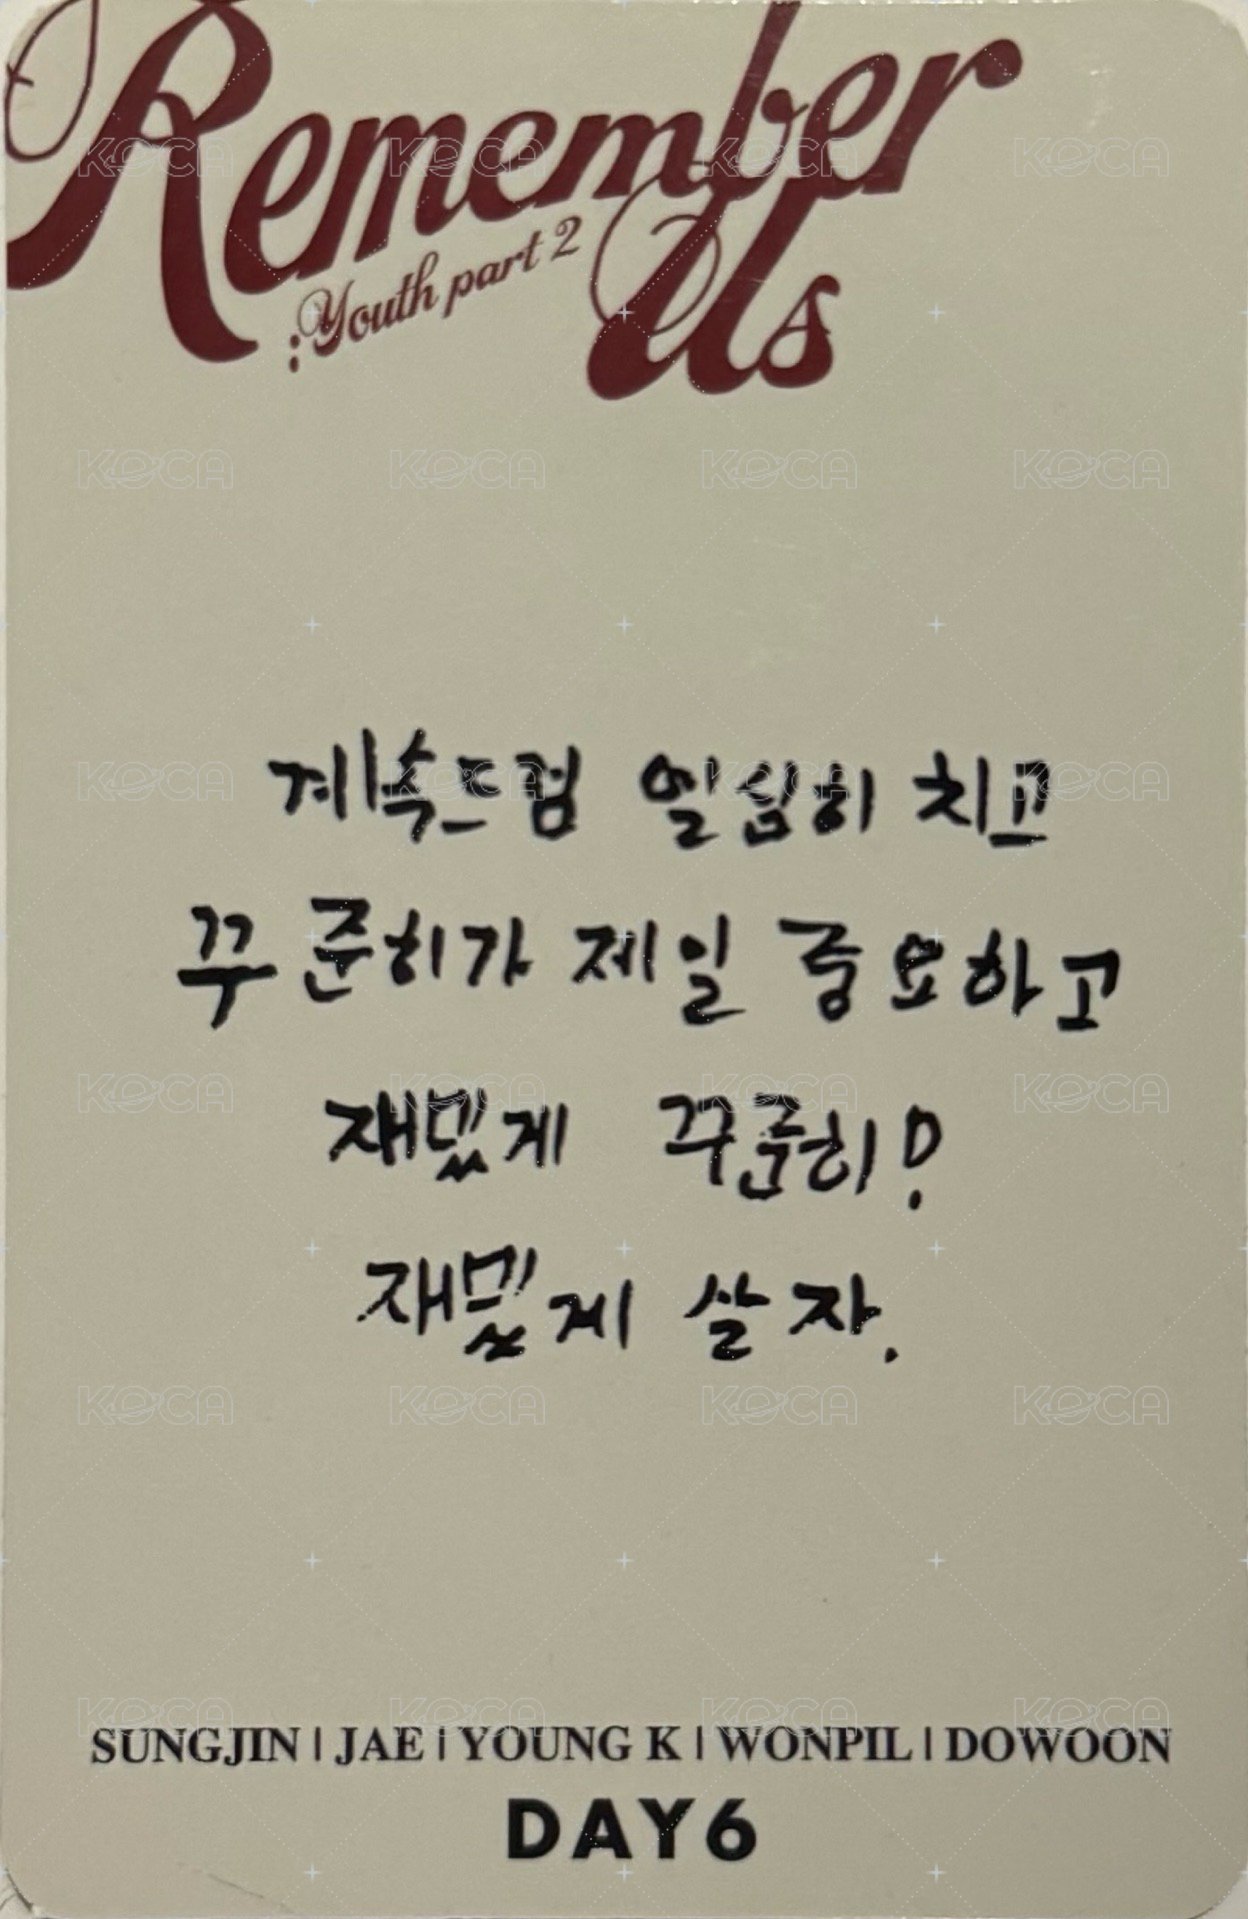 Remember
Us
: Youth part 2
계속드럼 열심히 치고
꾸준히가 제일 중요하고
재밌게 꾸준히!
재밌게 살자.
SUNGJIN | JAE | YOUNG K | WONPIL | DOWOON
DAY6
KOCA